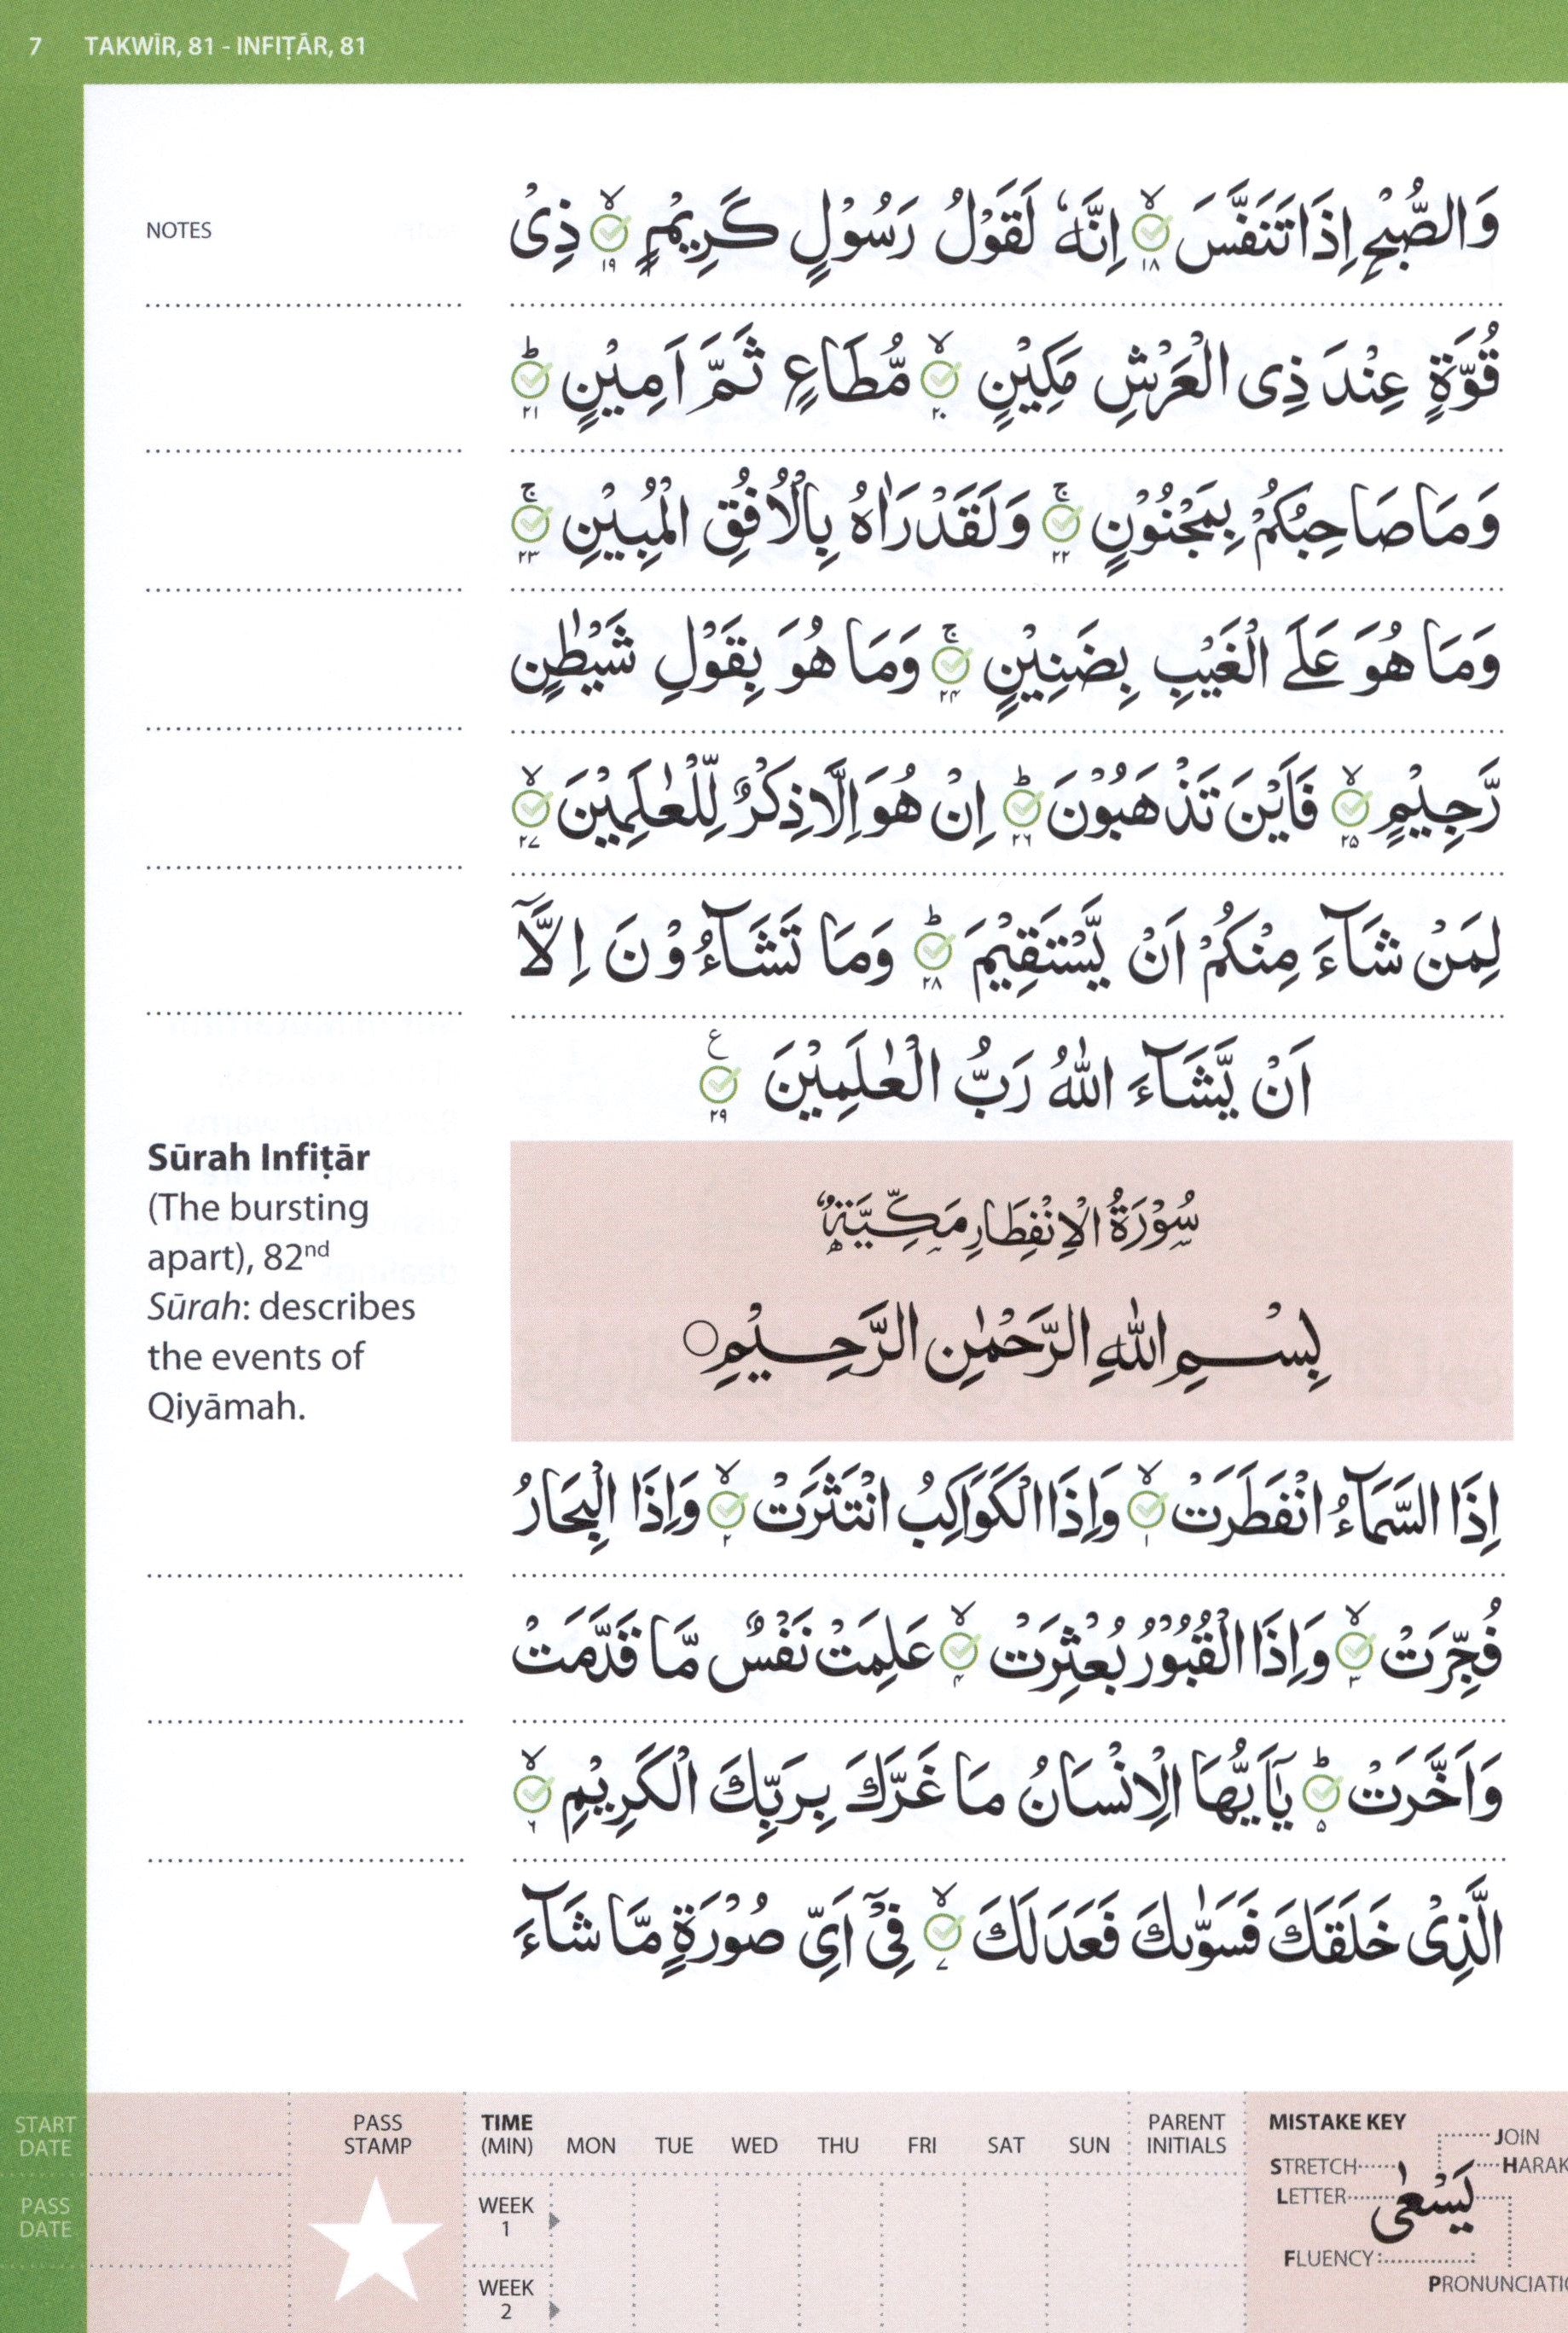 7 TAKWĪR, 81 - INFIṬĀR, 81
NOTES
وَالصُّبْحِ اِذَا تَنَفَّسَ ۙ‏ ١٨ اِنَّهٗ لَقَوْلُ رَسُوْلٍ كَرِيْمٍ ۙ‏ ١٩ ذِىْ
قُوَّةٍ عِنْدَ ذِى الْعَرْشِ مَكِيْنٍ ۙ‏ ٢٠ مُّطَاعٍ ثَمَّ اَمِيْنٍ ؕ‏ ٢١
وَمَا صَاحِبُكُمْ بِمَجْنُوْنٍ ۚ‏ ٢٢ وَلَقَدْ رَاٰهُ بِالْاُفُقِ الْمُبِيْنِ ۚ‏ ٢٣
وَمَا هُوَ عَلَى الْغَيْبِ بِضَنِيْنٍ ۚ‏ ٢٤ وَمَا هُوَ بِقَوْلِ شَيْطٰنٍ
رَّجِيْمٍ ۙ‏ ٢٥ فَاَيْنَ تَذْهَبُوْنَ ؕ‏ ٢٦ اِنْ هُوَ اِلَّا ذِكْرٌ لِّلْعٰلَمِيْنَ ۙ‏ ٢٧
لِمَنْ شَآءَ مِنْكُمْ اَنْ يَّسْتَقِيْمَ ؕ‏ ٢٨ وَمَا تَشَآءُوْنَ اِلَّآ
اَنْ يَّشَآءَ اللّٰهُ رَبُّ الْعٰلَمِيْنَ ع ٢٩
Sūrah Infiṭār
(The bursting
apart), 82nd
Sūrah: describes
the events of
Qiyāmah.
سُوْرَةُ الْاِنْفِطَارِ مَكِّيَّةٌ
بِسْمِ اللّٰهِ الرَّحْمٰنِ الرَّحِيْمِ ○
اِذَا السَّمَآءُ انْفَطَرَتْ ۙ‏ ١ وَاِذَا الْكَوَاكِبُ انْتَثَرَتْ ۙ‏ ٢ وَاِذَا الْبِحَارُ
فُجِّرَتْ ۙ‏ ٣ وَاِذَا الْقُبُوْرُ بُعْثِرَتْ ۙ‏ ٤ عَلِمَتْ نَفْسٌ مَّا قَدَّمَتْ
وَاَخَّرَتْ ؕ‏ ٥ يٰٓاَيُّهَا الْاِنْسَانُ مَا غَرَّكَ بِرَبِّكَ الْكَرِيْمِ ۙ‏ ٦
الَّذِىْ خَلَقَكَ فَسَوّٰىكَ فَعَدَلَكَ ۙ‏ ٧ فِىْٓ اَىِّ صُوْرَةٍ مَّا شَآءَ
START DATE
PASS DATE
PASS STAMP
TIME (MIN) MON TUE WED THU FRI SAT SUN PARENT INITIALS
WEEK 1
WEEK 2
MISTAKE KEY
JOIN
STRETCH HARAK
LETTER
يَسْعٰى
FLUENCY
PRONUNCIATIO